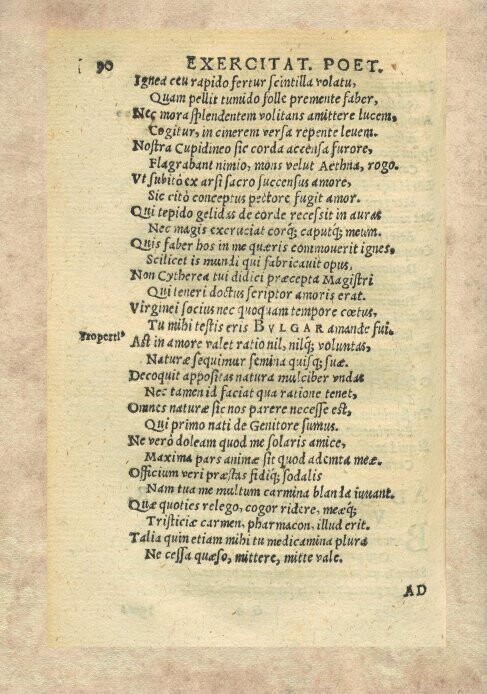 90 EXERCITAT. POET.
Ignea ceu rapido fertur scintilla volatu,
Quam pellit tumido folle premente faber,
Nec mora splendentem volitans amittere lucem,
Cogitur, in cinerem versa repente leuem.
Nostra Cupidineo sic corda accensa furore,
Flagrabant nimio, mons velut Aethna, rogo.
Vt subitò ex arsi sacro succensus amore,
Sic citò conceptus pectore fugit amor.
Qui tepido gelidas de corde recessit in auras
Nec magis excruciat corq; caputq; meum.
Quis faber hos in me quæris commouerit ignes,
Scilicet is mundi qui fabricauit opus,
Non Cytherea tui didici præcepta Magistri
Qui teneri doctus scriptor amoris erat.
Virginei socius nec quoquam tempore cœtus,
Tu mihi testis eris BVLGAR amande fui.
Properti⁹
Ast in amore valet ratio nil, nilq; voluntas,
Naturæ sequimur semina quisq; suæ.
Decoquit appositas natura mulciber vndas
Nec tamen id faciat qua ratione tenet,
Omnes naturæ sic nos parere necesse est,
Qui primo nati de Genitore sumus.
Ne verò doleam quod me solaris amice,
Maxima pars animæ sit quod ademta meæ.
Officium veri præstas fidiq; sodalis
Nam tua me multum carmina blanda iuuant.
Quæ quoties relego, cogor ridere, meæq;
Tristiciæ carmen, pharmacon, illud erit.
Talia quin etiam mihi tu medicamina plura
Ne cessa quæso, mittere, mitte vale.
AD